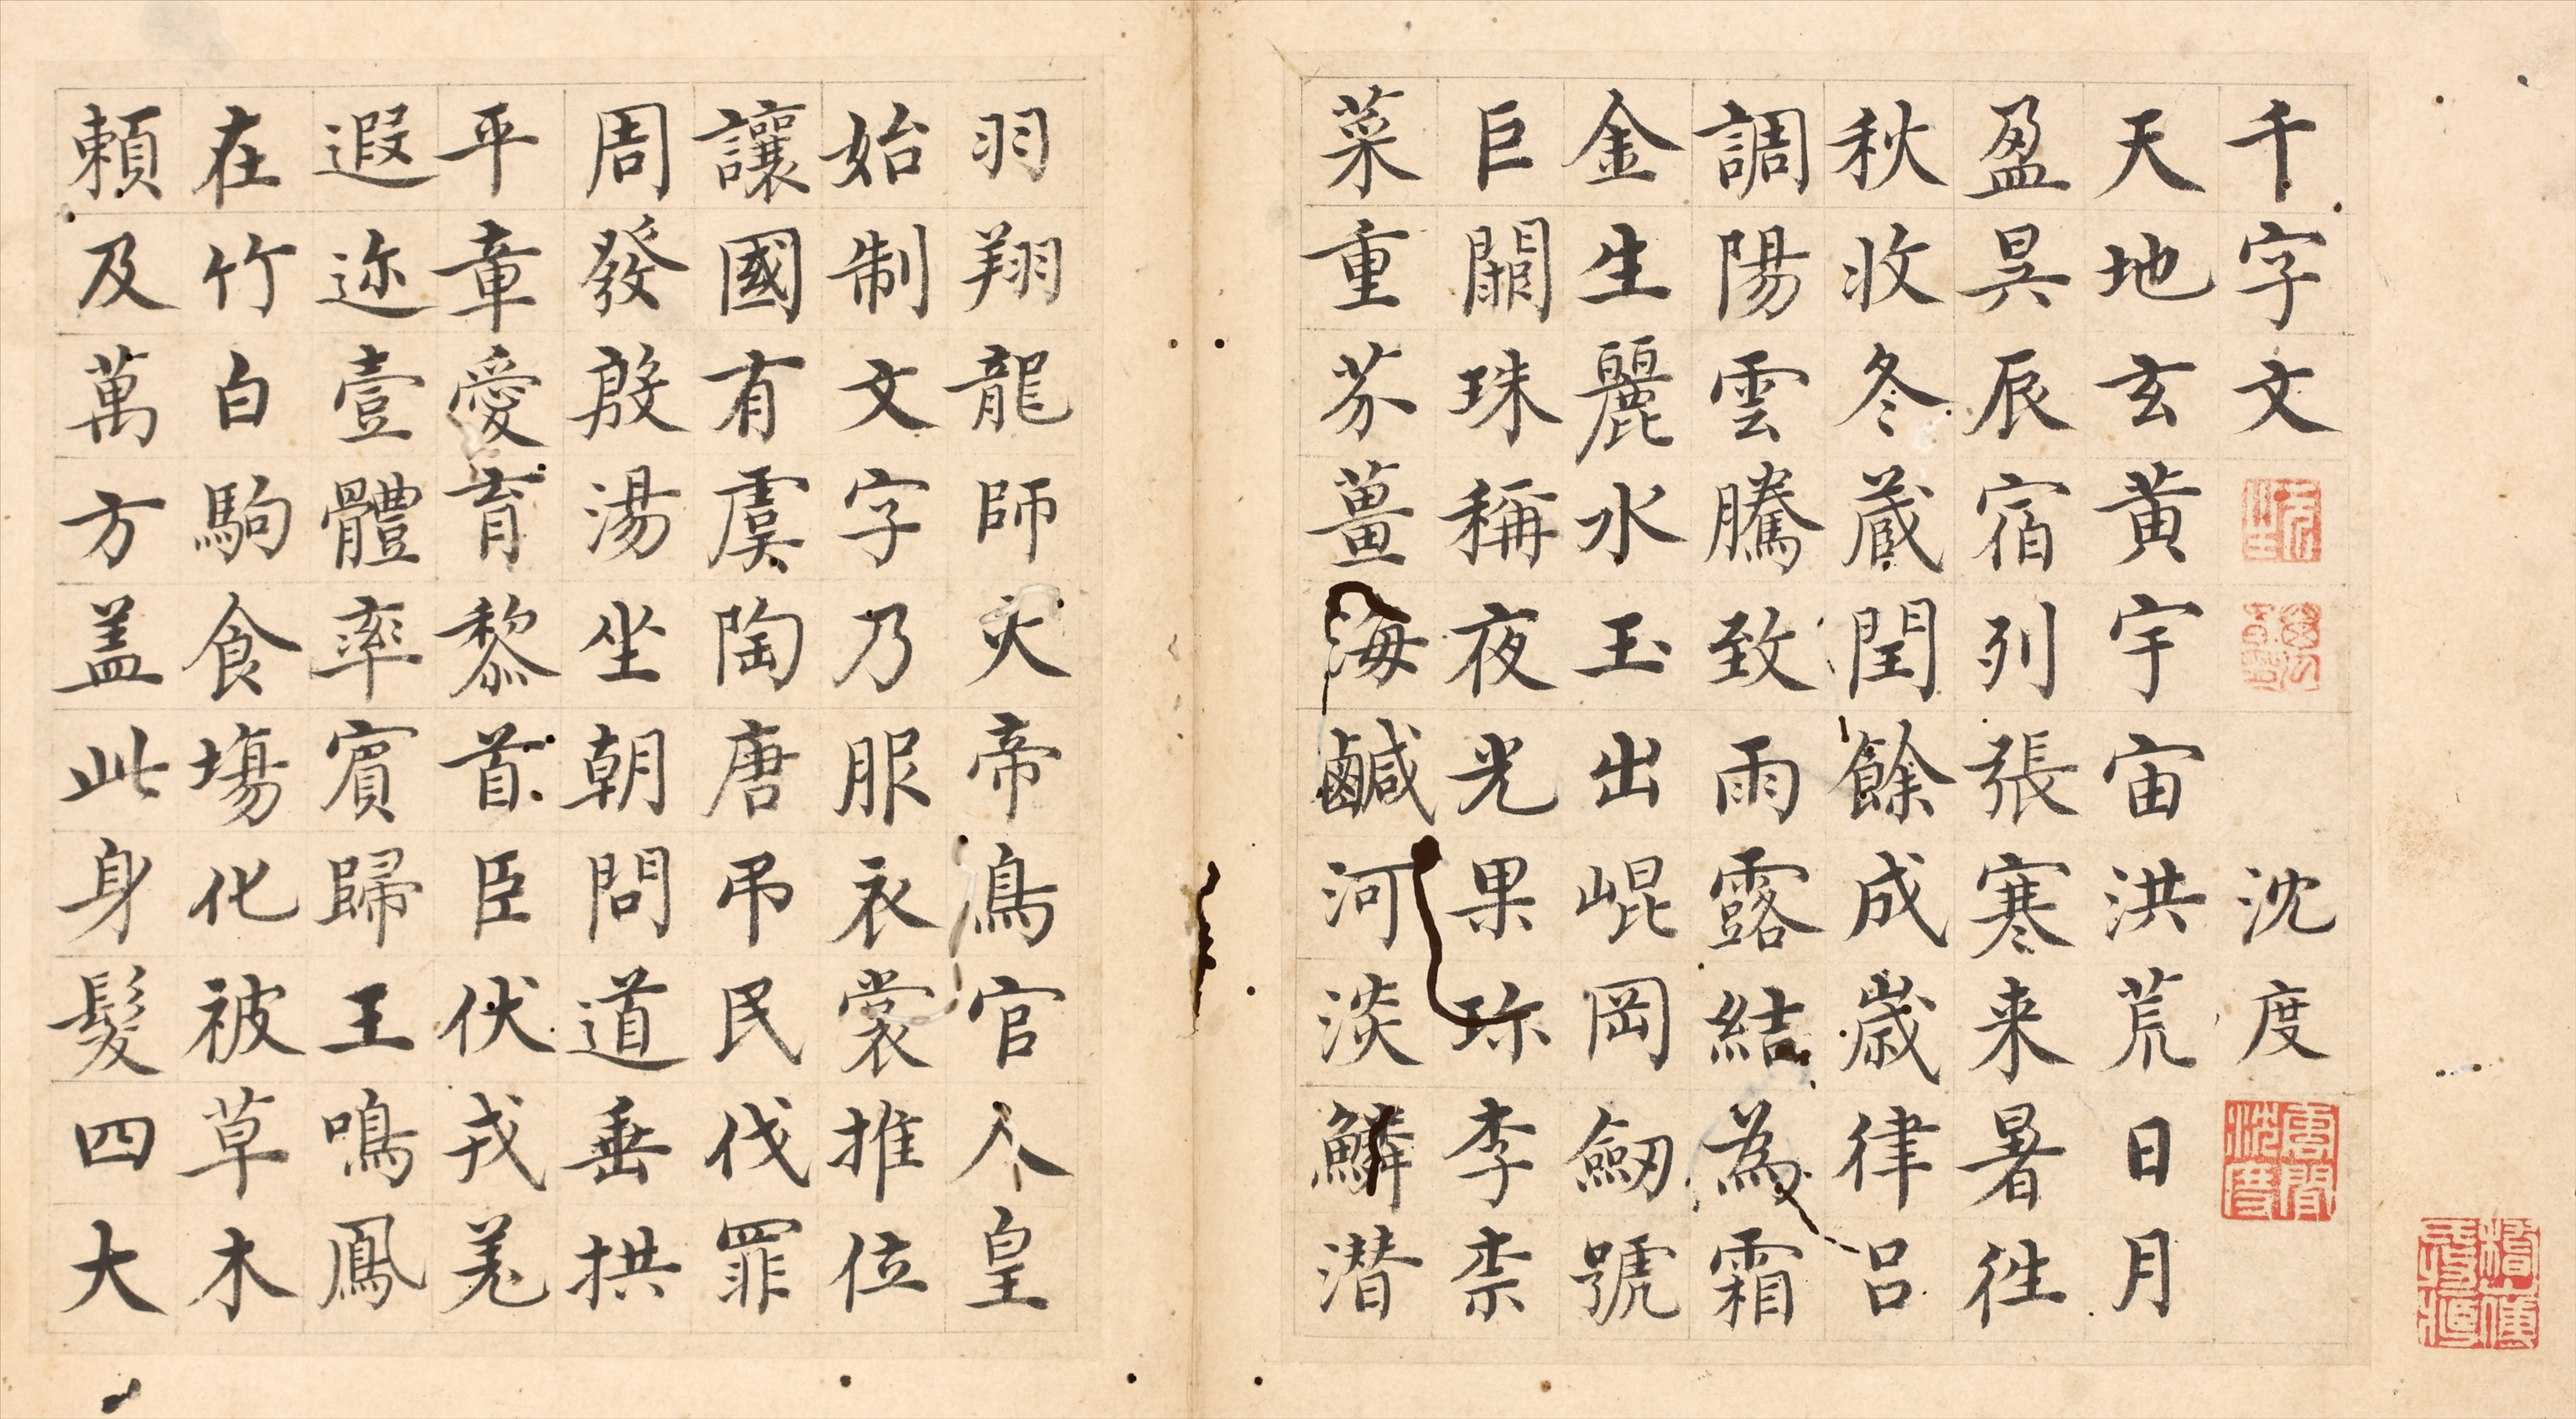 千字文 沈度
天地玄黃宇宙洪荒日月
盈昃辰宿列張寒来暑徃
秋收冬蔵閏餘成歲律呂
調陽雲騰致雨露結為霜
金生麗水玉出崐岡劒號
巨闕珠稱夜光果珎李柰
菜重芥薑海鹹河淡鱗潜
羽翔龍師火帝鳥官人皇
始制文字乃服衣裳推位
讓國有虞陶唐弔民伐罪
周發殷湯坐朝問道垂拱
平章愛育黎首臣伏戎羌
遐迩壹體率賓歸王鳴鳳
在竹白駒食場化被草木
頼及萬方盖此身髮四大